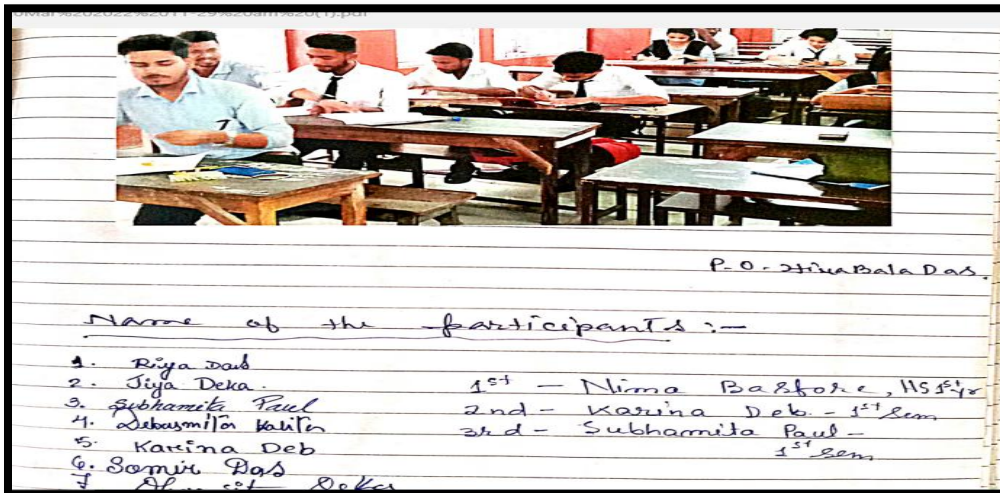 P.O. Hira Bala Das.
Name of the participants :-
1. Riya Das
2. Jiya Deka.
3. Subhamita Paul
4. Debasmita Kalita
5. Karina Deb
6. Samir Das
7
1st - Nima Basfore, HS 1st yr
2nd - Karina Deb. - 1st Sem
3rd - Subhamita Paul -
1st Sem